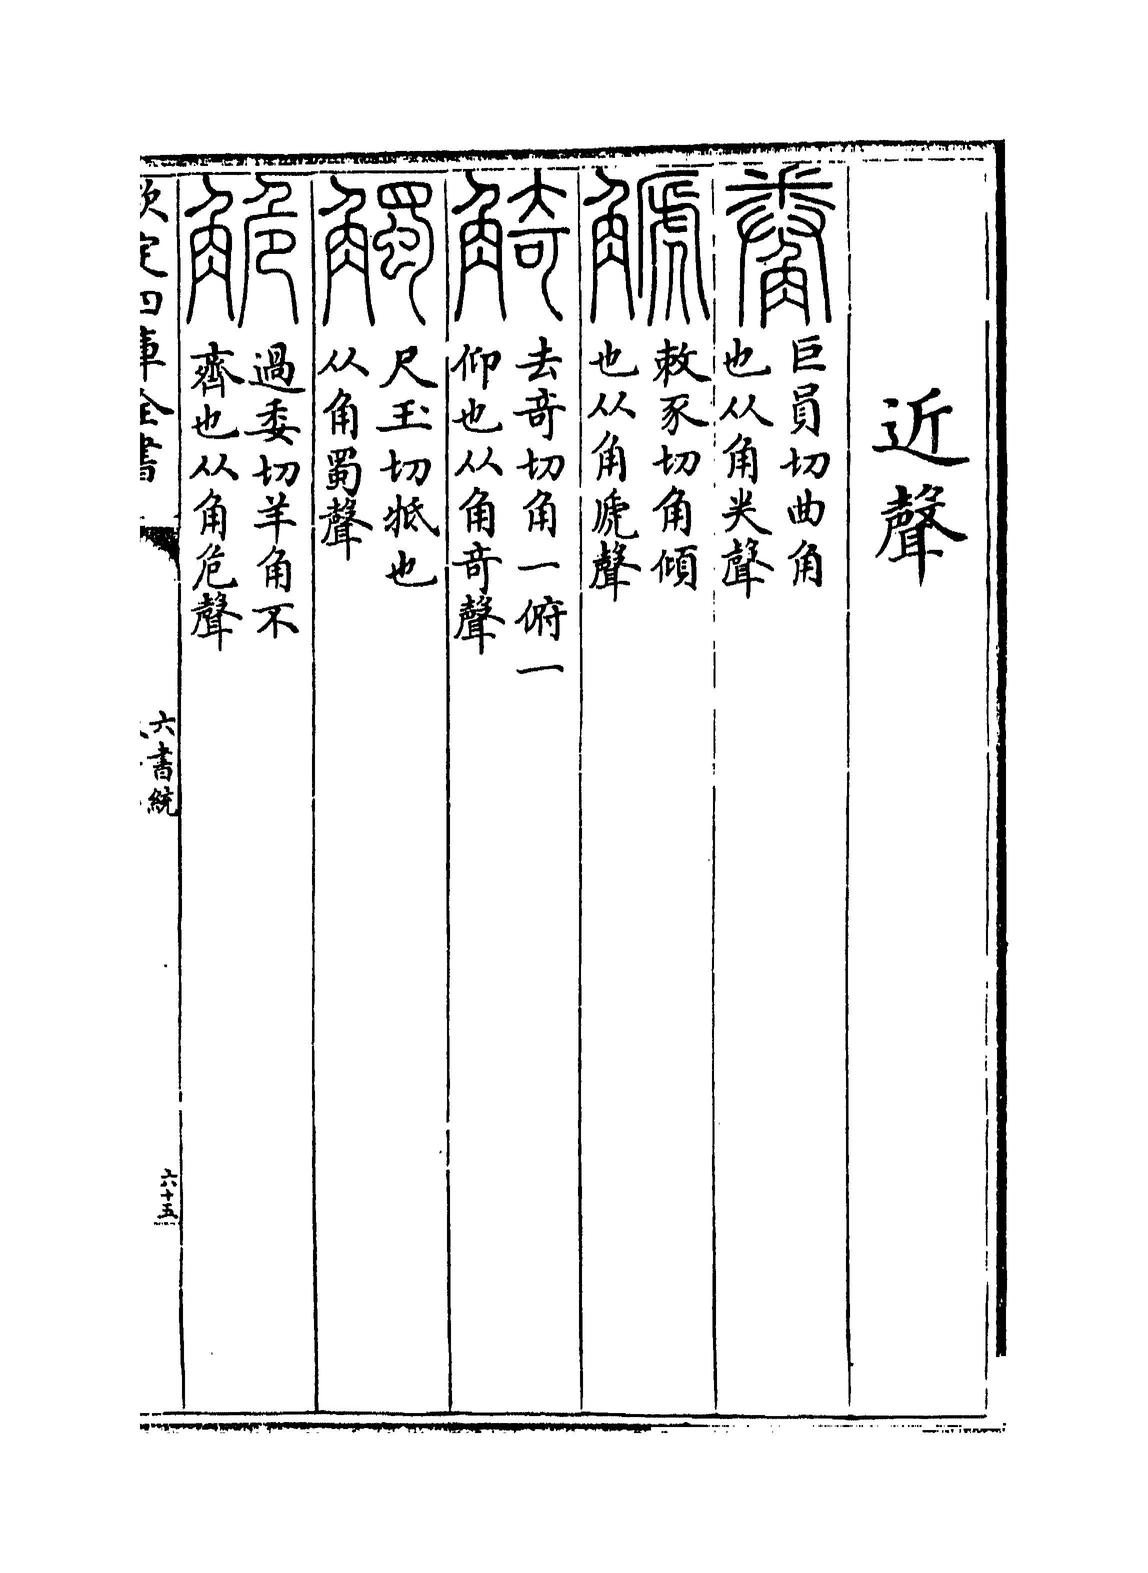 近聲
觠 巨員切曲角
也从角𠔉聲
觿 敕豕切角傾
也从角虒聲
觭 去奇切角一俯一
仰也从角奇聲
觸 尺玉切抵也
从角蜀聲
觤 過委切羊角不
齊也从角危聲
欽定四庫全書
六書統
六十五